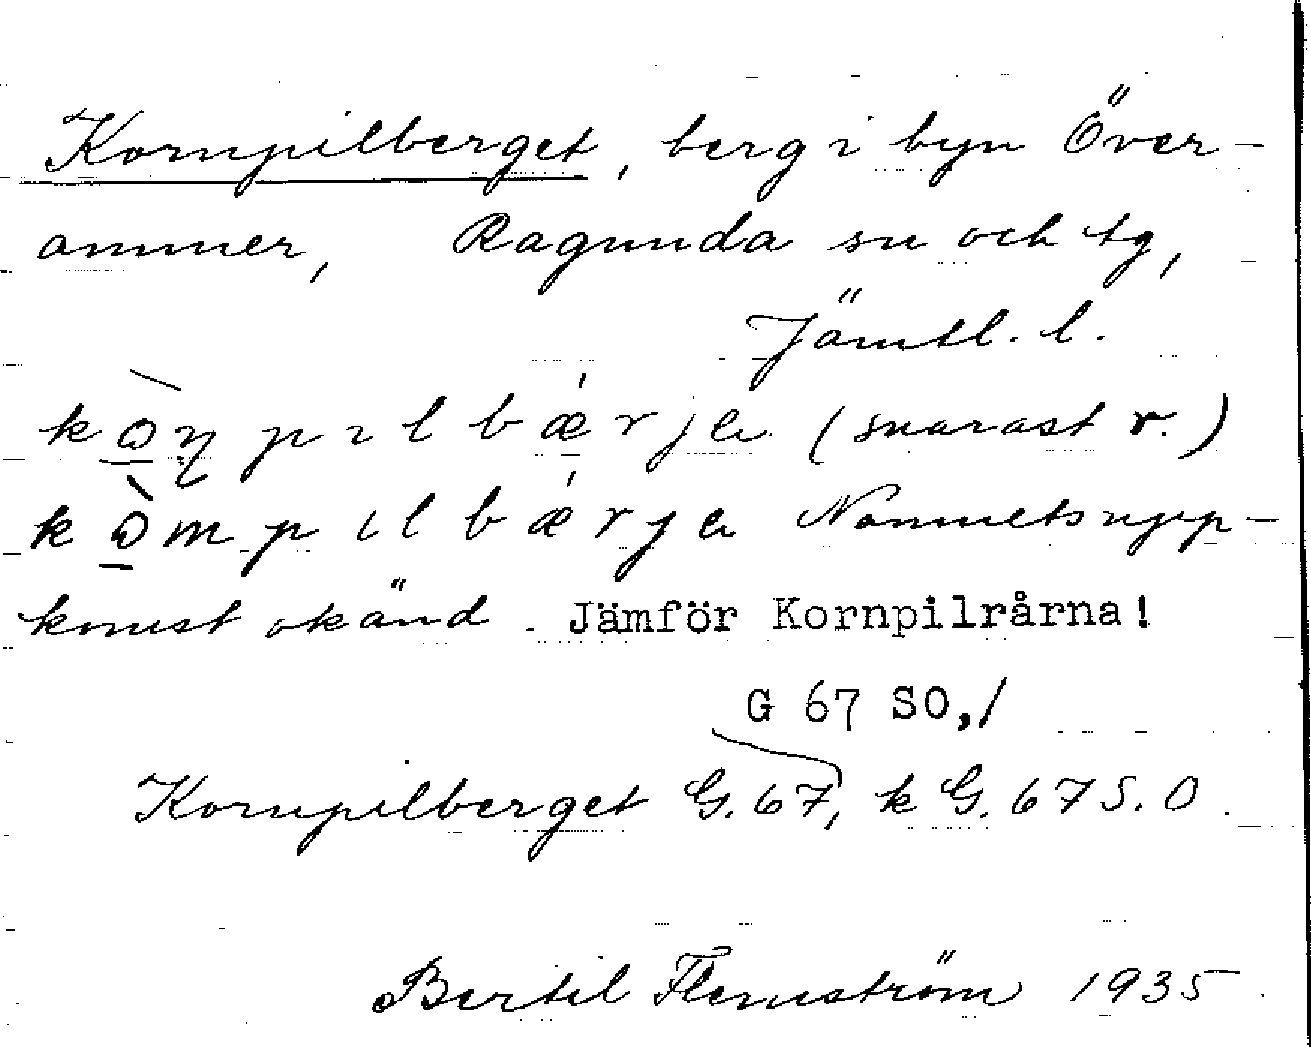 Kornpilberget, berg i byn Över-
ammer, Ragunda sn och tg,
Jämtl. l.
kɔ̀ɳpılbǽrjɐ (snarast r.)
kɔ̀mpılbǽrjɐ Namnets upp-
komst okänd. Jämför Kornpilrårna!
G 67 SO,/
Kornpilberget G. 67, k G. 67 S.O.
Bertil Flemström 1935